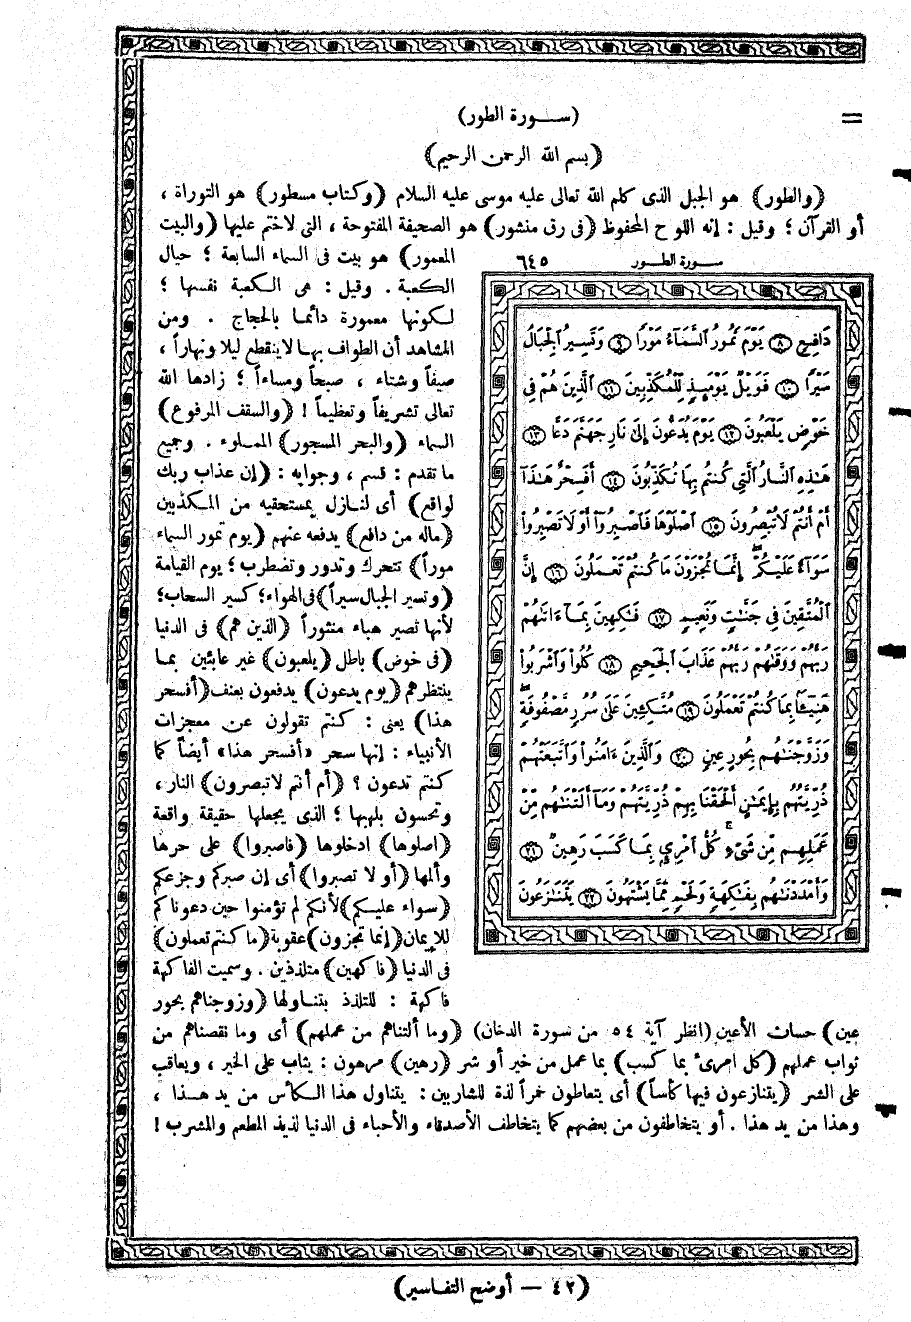 =
(ســورة الطور)
(بسم الله الرحمن الرحيم)
(والطور) هو الجبل الذى كلم الله تعالى عليه موسى عليه السلام (وكتاب مسطور) هو التوراة ،
أو القرآن ؛ وقيل : إنه اللوح المحفوظ (فى رق منشور) هو الصحيفة المفتوحة ، التى لاختم عليها (والبيت
المعمور) هو بيت فى السماء السابعة ؛ حيال
الكعبة . وقيل : هى الكعبة نفسها ؛
لكونها معمورة دائما بالحجاج . ومن
المشاهد أن الطواف بها لاينقطع ليلا ونهاراً ،
صيفاً وشتاء ، صبحاً ومساءاً ؛ زادها الله
تعالى تشريفاً وتعظيماً ! (والسقف المرفوع)
السماء (والبحر المسجور) المملوء . وجميع
ما تقدم : قسم ، وجوابه : (إن عذاب ربك
لواقع) أى لنازل بمستحقيه من المكذبين
(ماله من دافع) يدفعه عنهم (يوم تمور السماء
موراً) تتحرك وتدور وتضطرب ؛ يوم القيامة
(وتسير الجبال سيراً) فى الهواء؛ كسير السحاب؛
لأنها تصير هباء منثوراً (الذين هم) فى الدنيا
(فى خوض) باطل (يلعبون) غير عابئين بما
ينتظرهم (يوم يدعون) يدفعون بعنف (أفسحر
هذا) يعنى : كنتم تقولون عن معجزات
الأنبياء : إنها سحر «أفسحر هذا» أيضاً كما
كنتم تدعون ؟ (أم أنتم لاتبصرون) النار ،
وتحسون بلهيبها ؛ الذى يجعلها حقيقة واقعة
(اصلوها) ادخلوها (فاصبروا) على حرها
وألمها (أو لا تصبروا) أى إن صبركم وجزعكم
(سواء عليكم) لأنكم لم تؤمنوا حين دعوناكم
للإيمان (إنما تجزون) عقوبة (ما كنتم تعملون)
فى الدنيا (فاكهين) متلذذين . وسميت الفاكهة
فاكهة : للتلذذ بتناولها (وزوجناهم بحور
سـورة الطـور ٦٤٥
دَافِعٍ ٨ يَوْمَ تَمُورُ السَّمَآءُ مَوْرًا ٩ وَتَسِيرُ الْجِبَالُ
سَيْرًا ١٠ فَوَيْلٌ يَوْمَئِذٍ لِّلْمُكَذِّبِينَ ١١ الَّذِينَ هُمْ فِي
خَوْضٍ يَلْعَبُونَ ١٢ يَوْمَ يُدَعُّونَ إِلَىٰ نَارِ جَهَنَّمَ دَعًّا ١٣
هَٰذِهِ النَّارُ الَّتِي كُنتُم بِهَا تُكَذِّبُونَ ١٤ أَفَسِحْرٌ هَٰذَآ
أَمْ أَنتُمْ لَا تُبْصِرُونَ ١٥ اصْلَوْهَا فَاصْبِرُوٓا أَوْ لَا تَصْبِرُوا
سَوَآءٌ عَلَيْكُمْ ۖ إِنَّمَا تُجْزَوْنَ مَا كُنتُمْ تَعْمَلُونَ ١٦ إِنَّ
الْمُتَّقِينَ فِي جَنَّٰتٍ وَنَعِيمٍ ١٧ فَٰكِهِينَ بِمَآ ءَاتَىٰهُمْ
رَبُّهُمْ وَوَقَىٰهُمْ رَبُّهُمْ عَذَابَ الْجَحِيمِ ١٨ كُلُوا وَاشْرَبُوا
هَنِيٓـًٔا بِمَا كُنتُمْ تَعْمَلُونَ ١٩ مُتَّكِـِٔينَ عَلَىٰ سُرُرٍ مَّصْفُوفَةٍ ۖ
وَزَوَّجْنَٰهُم بِحُورٍ عِينٍ ٢٠ وَالَّذِينَ ءَامَنُوا وَاتَّبَعَتْهُمْ
ذُرِّيَّتُهُم بِإِيمَٰنٍ أَلْحَقْنَا بِهِمْ ذُرِّيَّتَهُمْ وَمَآ أَلَتْنَٰهُم مِّنْ
عَمَلِهِم مِّن شَيْءٍ ۚ كُلُّ امْرِئٍ بِمَا كَسَبَ رَهِينٌ ٢١
وَأَمْدَدْنَٰهُم بِفَٰكِهَةٍ وَلَحْمٍ مِّمَّا يَشْتَهُونَ ٢٢ يَتَنَٰزَعُونَ
عين) حسان الأعين (انظر آية ٥٤ من سورة الدخان) (وما ألتناهم من عملهم) أى وما نقصناهم من
ثواب عملهم (كل امرىء بما كسب) بما عمل من خير أو شر (رهين) مرهون : يثاب على الخير ، ويعاقب
على الشر (يتنازعون فيها كأساً) أى يتعاطون خمراً لذة للشاربين : يتناول هذا الكأس من يد هـذا ،
وهذا من يد هذا . أو يتخاطفون من بعضهم كما يتخاطف الأصدقاء والأحباء فى الدنيا لذيذ المطعم والمشرب !
(٤٢ — أوضح التفاسير)